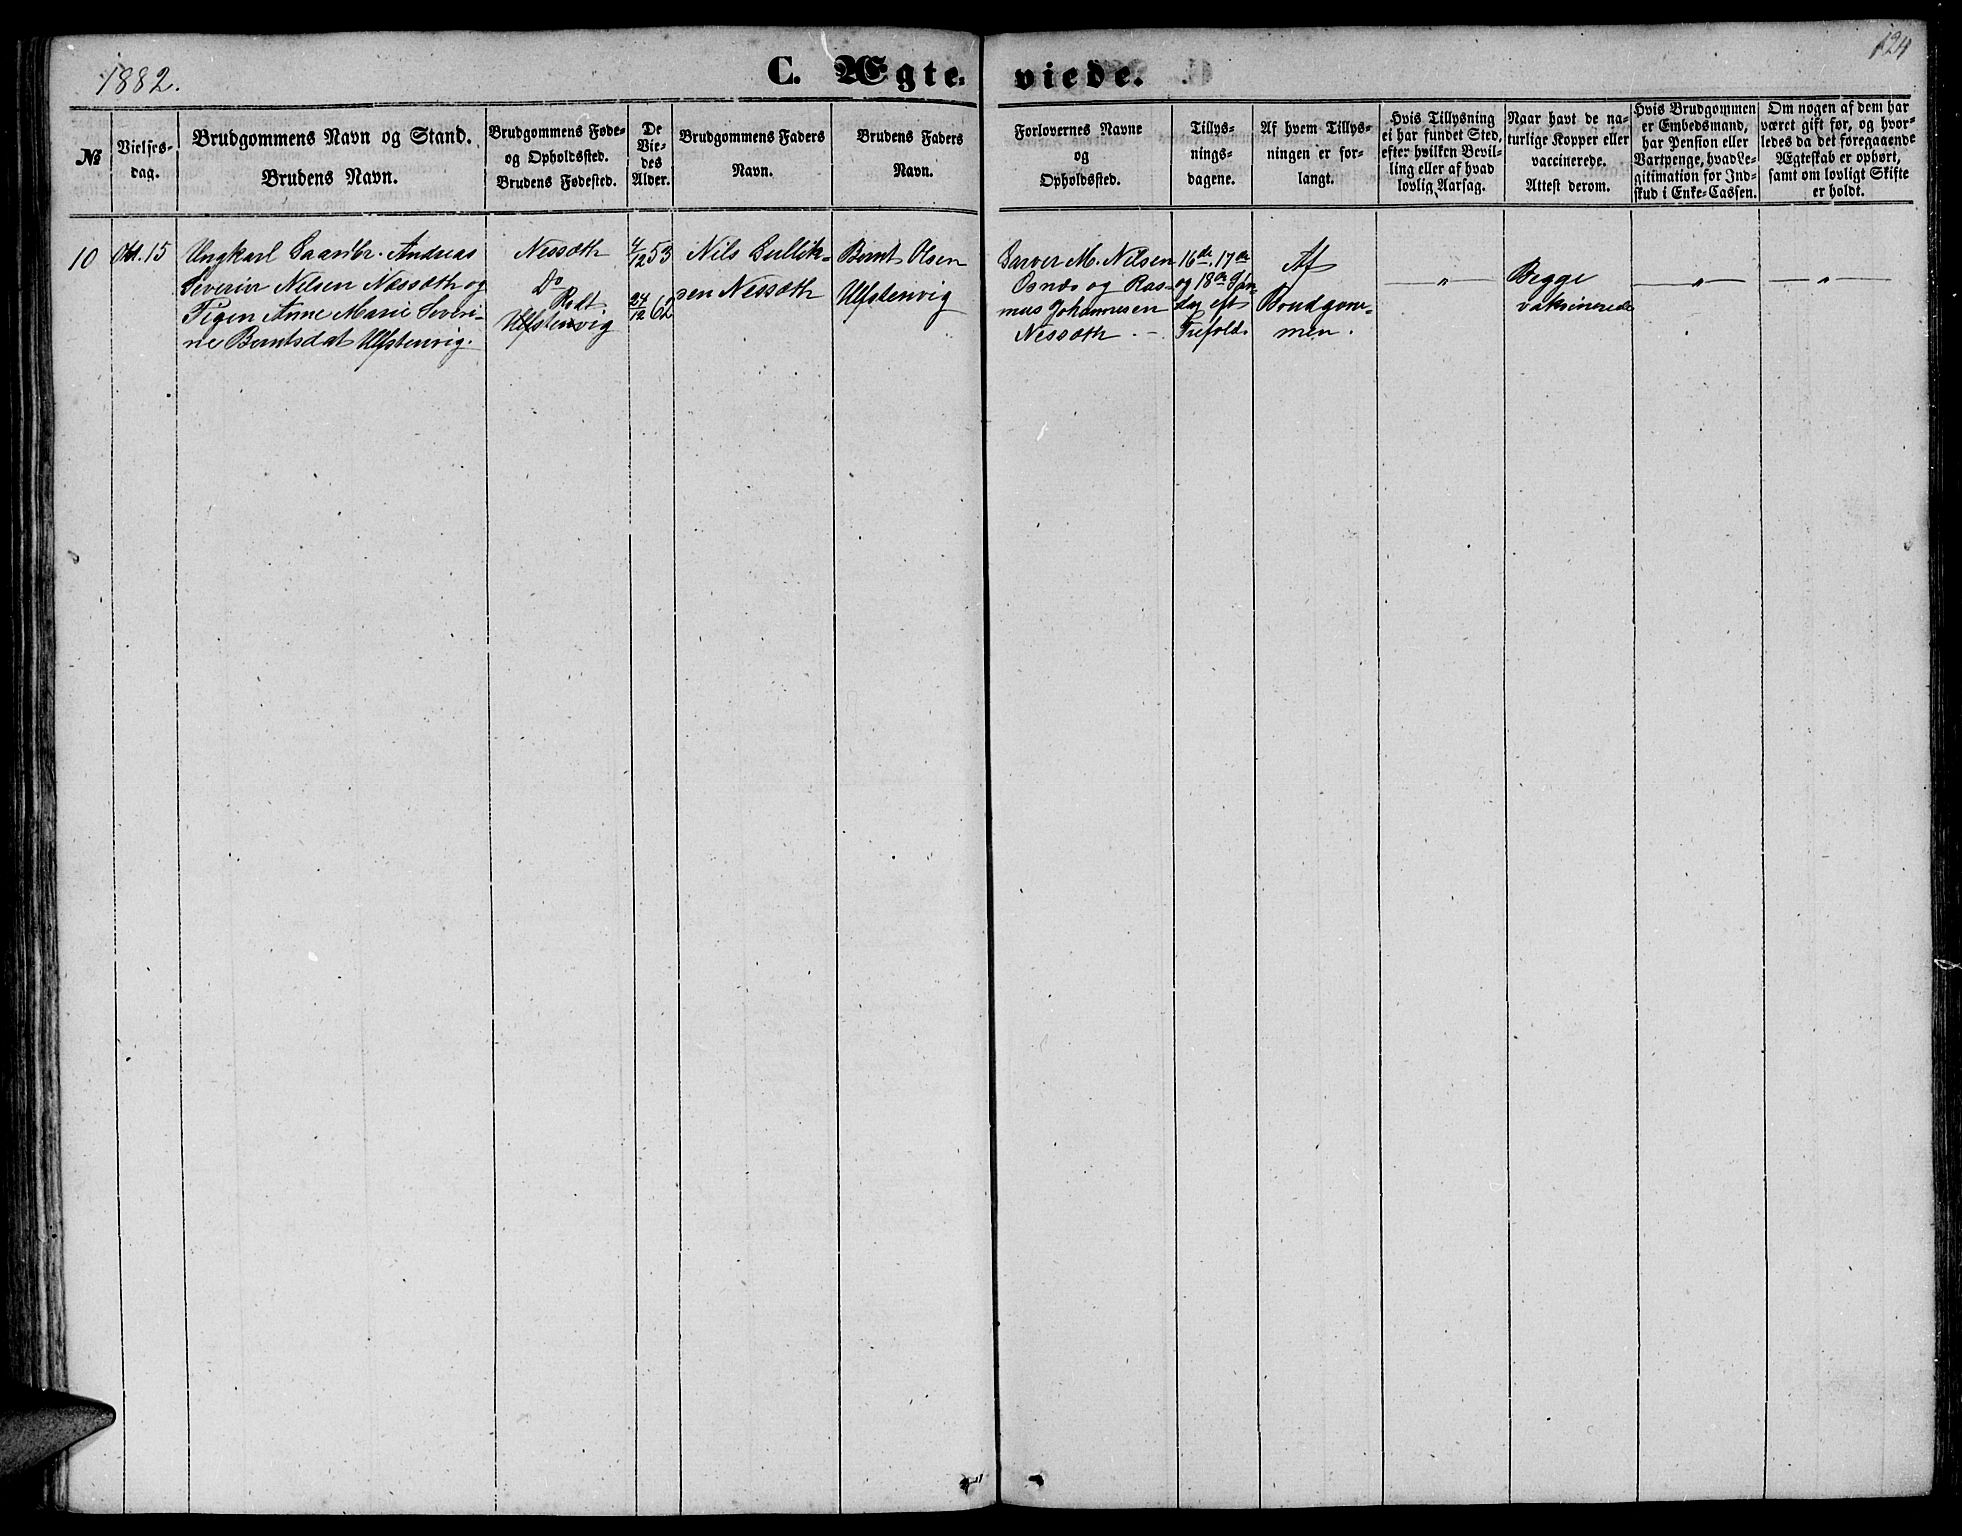 1882.
C. Ægte- viede.
124
№
Vielses-
dag.
Brudgommens Navn og Stand.
Brudens Navn.
Brudgommens Føde-
og Opholdssted.
Brudens Fødested.
De
Vie-
des
Alder.
Brudgommens Faders
Navn.
Brudens Faders
Navn.
Forlovernes Navne
og
Opholdssted.
Tillys-
nings-
dagene.
Af hvem Tillys-
ningen er for-
langt.
Hvis Tillysning
ei har fundet Sted,
efter hvilken Bevil-
ling eller af hvad
lovlig Aarsag.
Naar havt de na-
turlige Kopper eller
vaccinerede.
Attest derom.
Hvis Brudgommen
er Embedsmand,
har Pension eller
Vartpenge, hvad Le-
gitimation for Ind-
skud i Enke-Cassen.
Om nogen af dem har
været gift før, og hvor-
ledes da det foregaaende
Ægteskab er ophørt,
samt om lovligt Skifte
er holdt.
10
Okt. 15
Ungkarl Gaardbr. Andreas
Severin Nilsen Nessæth og
Pigen Anne Marie Severi-
ne Berntsdat Ulfstenvig.
Nessæth
Do
Rødt
Ulfstenvig
4/12 53
24/12 62
Nils Gullik-
sen Nessæth
Bernt Olsen
Ulfstenvig
Garver M. Nilsen
Osnæs og Ras-
mus Johannesen
Nessæth . –
16de, 17de
og 18de Søn
dag eft
Trefold.
Af
Brudgom-
men.
— " —
Begge
vaksinerede
— " —
— " —